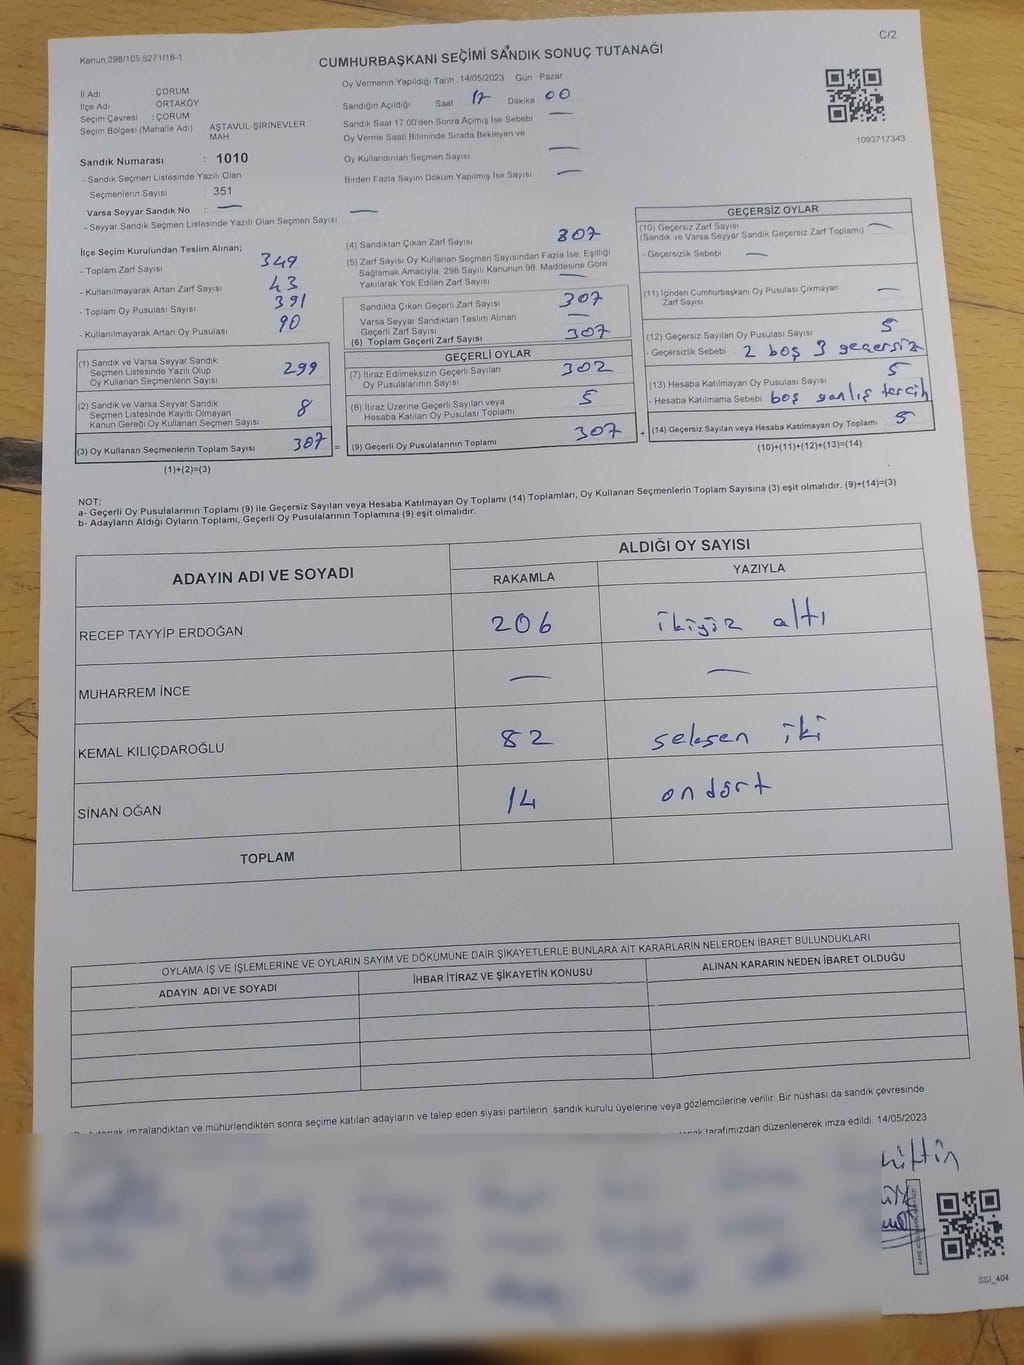 C/2
Kanun:298/105,5271/18-1
CUMHURBAŞKANI SEÇİMİ SANDIK SONUÇ TUTANAĞI
İl Adı ÇORUM
İlçe Adı ORTAKÖY
Seçim Çevresi : ÇORUM
Seçim Bölgesi (Mahalle Adı) AŞTAVUL-ŞİRİNEVLER
MAH
Sandık Numarası : 1010
- Sandık Seçmen Listesinde Yazılı Olan
Seçmenlerin Sayısı : 351
Varsa Seyyar Sandık No : —
- Seyyar Sandık Seçmen Listesinde Yazılı Olan Seçmen Sayısı —
Oy Vermenin Yapıldığı Tarih :14/05/2023 Gün Pazar
Sandığın Açıldığı Saat 17 Dakika 00
Sandık Saat 17.00'den Sonra Açılmış İse Sebebi —
Oy Verme Saati Bitiminde Sırada Bekleyen ve
Oy Kullandırılan Seçmen Sayısı —
Birden Fazla Sayım Döküm Yapılmış İse Sayısı —
1093717343
İlçe Seçim Kurulundan Teslim Alınan;
- Toplam Zarf Sayısı 349
- Kullanılmayarak Artan Zarf Sayısı 43
- Toplam Oy Pusulası Sayısı 391
- Kullanılmayarak Artan Oy Pusulası 90
(1) Sandık ve Varsa Seyyar Sandık
Seçmen Listesinde Yazılı Olup
Oy Kullanan Seçmenlerin Sayısı 299
(2) Sandık ve Varsa Seyyar Sandık
Seçmen Listesinde Kayıtlı Olmayan
Kanun Gereği Oy Kullanan Seçmen Sayısı 8
(3) Oy Kullanan Seçmenlerin Toplam Sayısı 307 =
(1)+(2)=(3)
(4) Sandıktan Çıkan Zarf Sayısı 307
(5) Zarf Sayısı Oy Kullanan Seçmen Sayısından Fazla İse, Eşitliği
Sağlamak Amacıyla, 298 Sayılı Kanunun 98. Maddesine Göre
Yakılarak Yok Edilen Zarf Sayısı —
Sandıkta Çıkan Geçerli Zarf Sayısı 307
Varsa Seyyar Sandıktan Teslim Alınan
Geçerli Zarf Sayısı —
(6) Toplam Geçerli Zarf Sayısı 307
GEÇERLİ OYLAR
(7) İtiraz Edilmeksizin Geçerli Sayılan
Oy Pusulalarının Sayısı 302
(8) İtiraz Üzerine Geçerli Sayılan veya
Hesaba Katılan Oy Pusulası Toplamı 5
(9) Geçerli Oy Pusulalarının Toplamı 307 +
GEÇERSİZ OYLAR
(10) Geçersiz Zarf Sayısı —
(Sandık ve Varsa Seyyar Sandık Geçersiz Zarf Toplamı)
- Geçersizlik Sebebi —
(11) İçinden Cumhurbaşkanı Oy Pusulası Çıkmayan
Zarf Sayısı —
(12) Geçersiz Sayılan Oy Pusulası Sayısı 5
- Geçersizlik Sebebi : 2 boş 3 geçersiz
(13) Hesaba Katılmayan Oy Pusulası Sayısı 5
- Hesaba Katılmama Sebebi : boş yanlış tercih
(14) Geçersiz Sayılan veya Hesaba Katılmayan Oy Toplamı 5
(10)+(11)+(12)+(13)=(14)
NOT:
a- Geçerli Oy Pusulalarının Toplamı (9) ile Geçersiz Sayılan veya Hesaba Katılmayan Oy Toplamı (14) Toplamları, Oy Kullanan Seçmenlerin Toplam Sayısına (3) eşit olmalıdır. (9)+(14)=(3)
b- Adayların Aldığı Oyların Toplamı, Geçerli Oy Pusulalarının Toplamına (9) eşit olmalıdır.
ADAYIN ADI VE SOYADI
ALDIĞI OY SAYISI
RAKAMLA YAZIYLA
RECEP TAYYİP ERDOĞAN 206 ikiyüz altı
MUHARREM İNCE — —
KEMAL KILIÇDAROĞLU 82 seksen iki
SİNAN OĞAN 14 ondört
TOPLAM
OYLAMA İŞ VE İŞLEMLERİNE VE OYLARIN SAYIM VE DÖKÜMÜNE DAİR ŞİKAYETLERLE BUNLARA AİT KARARLARIN NELERDEN İBARET BULUNDUKLARI
ADAYIN ADI VE SOYADI İHBAR İTİRAZ VE ŞİKAYETİN KONUSU ALINAN KARARIN NEDEN İBARET OLDUĞU
imzalandıktan ve mühürlendikten sonra seçime katılan adayların ve talep eden siyasi partilerin sandık kurulu üyelerine veya gözlemcilerine verilir. Bir nüshası da sandık çevresinde
tarafımızdan düzenlenerek imza edildi. 14/05/2023
SSI_404